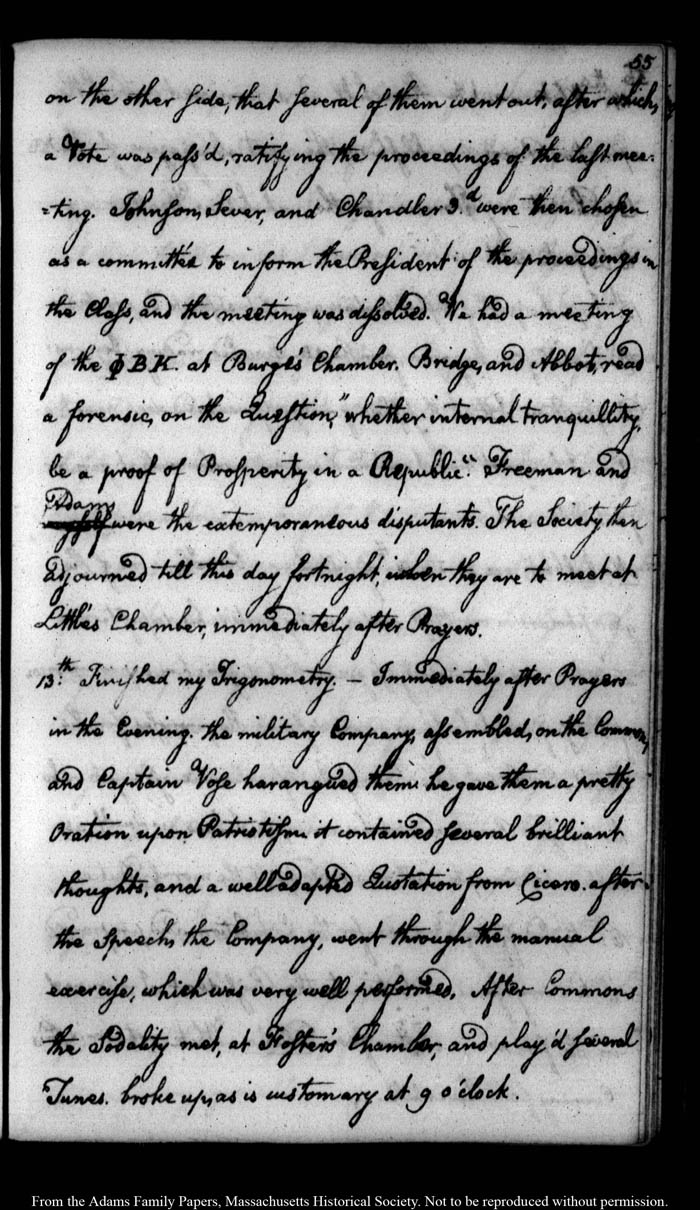 55
on the other side, that several of them went out, after which,
a Vote was pass'd, ratifying the proceedings of the last mee-
=ting. Johnson, Sever, and Chandler 3.d were then chosen
as a committee to inform the President of the proceedings in
the Class, and the meeting was dissolved. We had a meeting
of the ΦBK. at Burge's Chamber. Bridge, and Abbot, read
a forensic, on the Question, "whether internal tranquillity,
be a proof of Prosperity in a Republic". Freeman and
Adams
myself were the extemporaneous disputants. The Society then
adjourned till this day fortnight, when they are to meet at
Little's Chamber, immediately after Prayers.
13.th Finished my Trigonometry. — Immediately after Prayers
in the Evening. the military Company, assembled, on the Common,
and Captain Vose harangued them: he gave them a pretty
Oration upon Patriotism: it contained several brilliant
thoughts, and a well adapted Quotation from Cicero. after
the Speech, the Company, went through the manual
exercise, which was very well performed. After Commons
the Sodality met, at Foster's Chamber, and play'd several
Tunes. broke up, as is customary at 9 o'clock.
From the Adams Family Papers, Massachusetts Historical Society. Not to be reproduced without permission.